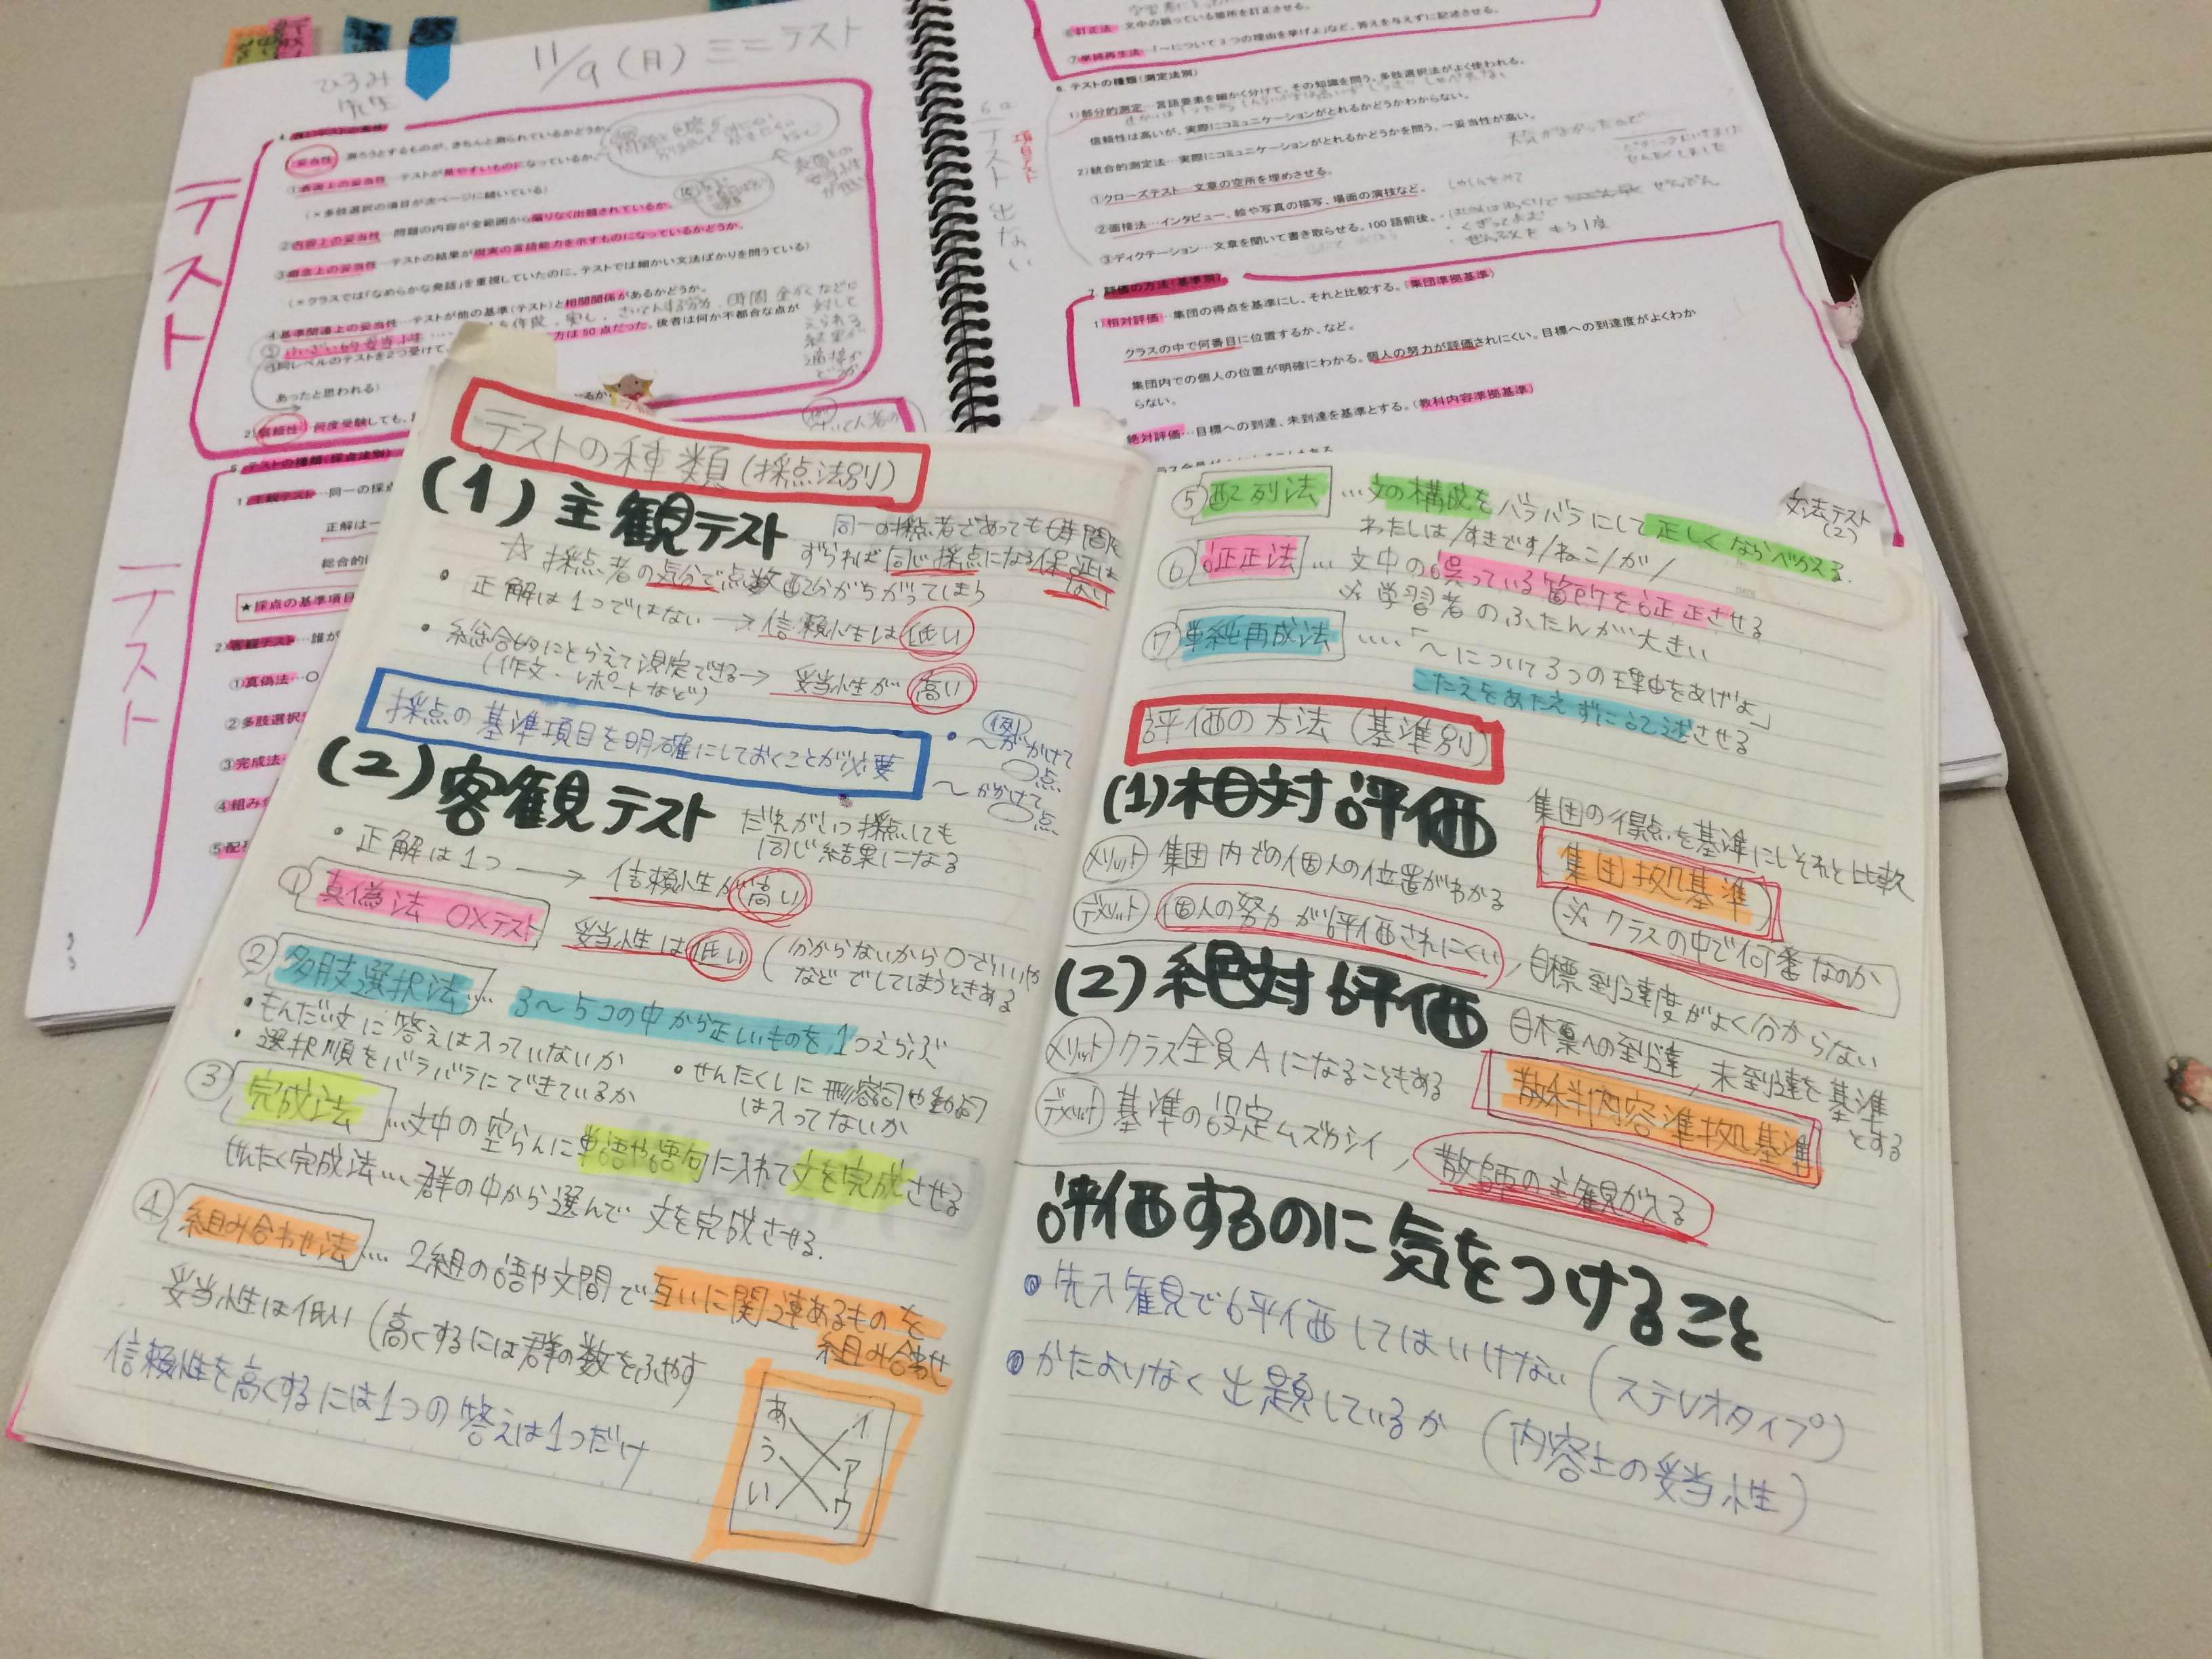 11/9(月)ミニテスト
ひろみ
先生
テスト
テスト
妥当性…測ろうとするものが、きちんと測られているかどうか。
①表面上の妥当性…テストが見やすいものになっているか。
(×多肢選択の項目が次ページに続いている)
②内容上の妥当性…問題の内容が全範囲から偏りなく出題されているか。
③概念上の妥当性…テストの結果が現実の言語能力を示すものになっているかどうか。
(×クラスでは「なめらかな発話」を重視していたのに、テストでは細かい文法ばかりを問うている)
④基準関連上の妥当性…テストが他の基準(テスト)と相関関係があるかどうか。
同レベルのテストを2つ受けて、
方は50点だった。後者は何か不都合な点が
あったと思われる)
2)信頼性…何度受験しても、
5.テストの種類(採点法別)
1)主観テスト…同一の採点
正解は一
総合的に
★採点の基準項目
2)客観テスト…誰が
①真偽法…○
②多肢選択
③完成法…
④組み
⑤配
訂正法…文中の誤っている箇所を訂正させる。
⑦単純再生法…「〜について3つの理由を挙げよ」など、答えを与えずに記述させる。
6.テストの種類(測定法別)
1)部分的測定…言語要素を細かく分けて、その知識を問う。多肢選択法がよく使われる。
信頼性は高いが、実際にコミュニケーションがとれるかどうかわからない。
2)統合的測定法…実際にコミュニケーションがとれるかどうかを問う。→妥当性が高い。
①クローズテスト…文章の空所を埋めさせる。
②面接法…インタビュー、絵や写真の描写、場面の演技など。
③ディクテーション…文章を聞いて書き取らせる。100語前後。
・くぎってよむ
・ぜんぶをもう1度
項目テスト
テスト出ない
7.評価の方法(基準別)
1)相対評価…集団の得点を基準にし、それと比較する。(集団準拠基準)
クラスの中で何番目に位置するか、など。
集団内での個人の位置が明確にわかる。個人の努力が評価されにくい。目標への到達度がよくわか
らない。
絶対評価…目標への到達、未到達を基準とする。(教科内容準拠基準)
テストの種類(採点法別)
(1)主観テスト
同一の採点者であっても時間を
ずらせば同じ採点になる保証は
ない
☆採点者の気分で点数配分がちがってしまう
・正解は1つではない→信頼性は低い
・総合的にとらえて測定できる→妥当性が高い
(作文・レポートなど)
採点の基準項目を明確にしておくことが必要
・例
〜がかけて
○点
〜がかけて
○点
(2)客観テスト
だれがいつ採点しても
同じ結果になる
・正解は1つ→信頼性が高い
①真偽法 ○×テスト
妥当性は低い(分からないから○でいいや
などでしてしまうときある
②多肢選択法… 3〜5コの中から正しいものを1つえらぶ
・もんだい文に答えは入っていないか
・選択順をバラバラにできているか
・せんたくしに形容詞や動詞
は入ってないか
③完成法…文中の空らんに単語や語句に入れて文を完成させる
せんたく完成法…群の中から選んで文を完成させる.
④組み合わせ法…2組の語や文間で互いに関連あるものを
組み合わせ
妥当性は低い(高くするには群の数をふやす
信頼性を高くするには1つの答えは1つだけ
あ イ
う ア
い ウ
文法テスト
(2)
⑤配列法…文の構成をバラバラにして正しくならべかえる.
わたしは/すきです/ねこ/が/
⑥訂正法…文中の誤っている箇所を訂正させる
※学習者のふたんが大きい
⑦単純再成法….「〜について3つの理由をあげよ」
こたえをあたえずに記述させる
評価の方法(基準別)
(1)相対評価
集団の得点を基準にしそれと比較
集団拠基準
(メリット)集団内での個人の位置がわかる
(※クラスの中で何番なのか
(デメリット)個人の努力が評価されにくい,目標到達度がよく分からない
(2)絶対評価
目標への到達,未到達を基準
とする
教科内容準拠基準
(メリット)クラス全員Aになることもある
(デメリット)基準の設定ムズカシイ,教師の主観が入る
評価するのに気をつけること
・先入観で評価してはいけない(ステレオタイプ)
・かたよりなく出題しているか(内容上の妥当性)